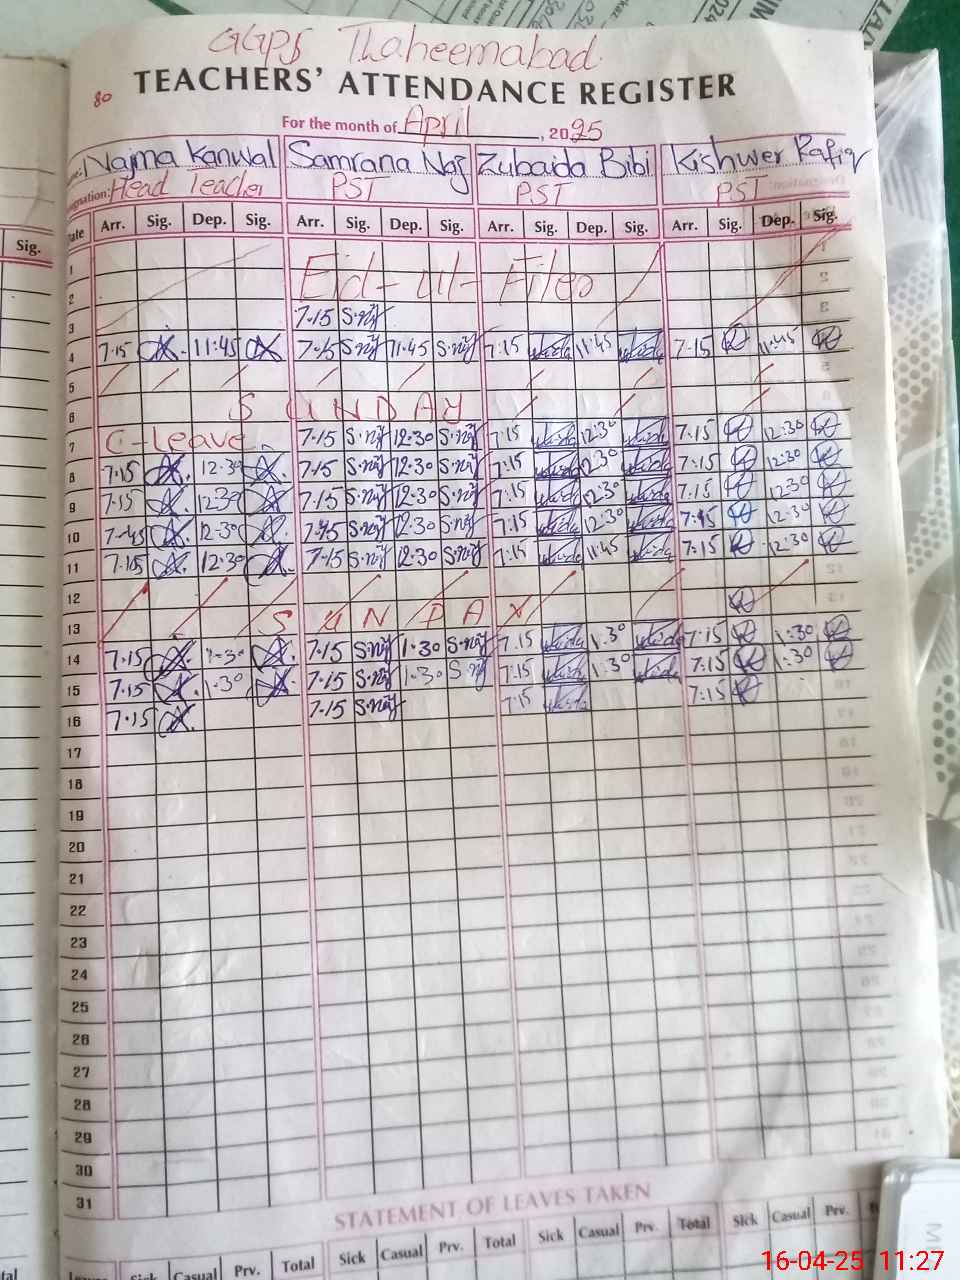 GGPS Thaheemabad
TEACHERS' ATTENDANCE REGISTER
80
For the month of April, 2025
Najma Kanwal Samrana Naz Zubaida Bibi Kishwer Rafiq
Designation: Head Teacher PST PST PST
Date Arr. Sig. Dep. Sig. Arr. Sig. Dep. Sig. Arr. Sig. Dep. Sig. Arr. Sig. Dep. Sig.
Sig.
1
2 Eid-ul-Fiter
3 7.15
4 7.15 11:45 7.15 11.45 7.15 11:45 7.15 11:45
5
6 SUNDAY
7 C-Leave 7.15 12:30 7.15 12:30 7.15 12:30
8 7.15 12:30 7.15 12:30 7:15 12:30 7.15 12:30
9 7.15 12:30 7.15 12:30 7.15 12:30 7.15 12:30
10 12:30 12:30 7.15 12:30 12:30
11 7.15 12:30 7.15 12:30 7.15 11:45 7.15 12:30
12
13 SUNDAY
14 7.15 1:30 7.15 1:30 7.15 1:30 7.15 1:30
15 7.15 1:30 7.15 1:30 7.15 1:30 7.15 1:30
16 7.15 7.15 7.15 7.15
17
18
19
20
21
22
23
24
25
26
27
28
29
30
31
STATEMENT OF LEAVES TAKEN
Leaves Sick Casual Prv. Total Sick Casual Prv. Total Sick Casual Prv. Total Sick Casual Prv.
16-04-25 11:27